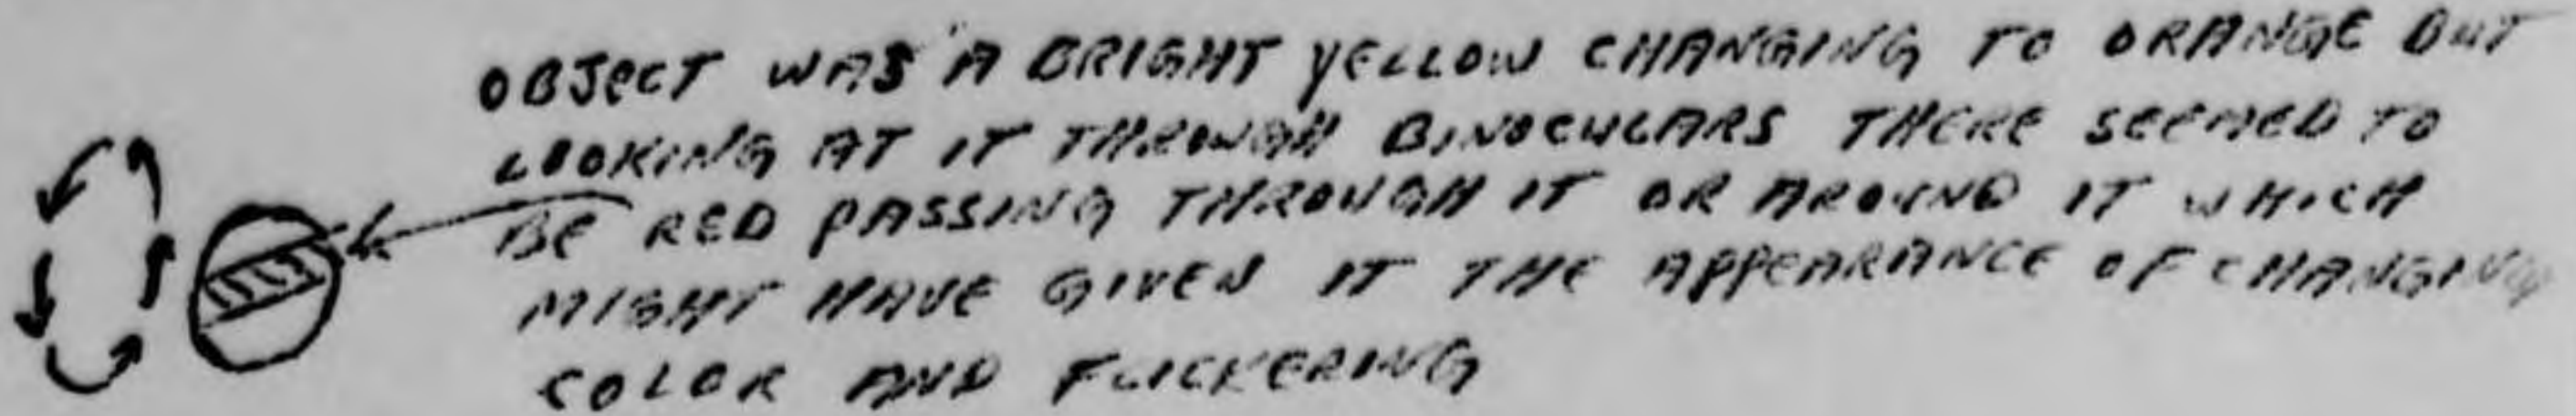 OBJECT WAS A BRIGHT YELLOW CHANGING TO ORANGE BUT
LOOKING AT IT THROUGH BINOCULARS THERE SEEMED TO
BE RED PASSING THROUGH IT OR AROUND IT WHICH
MIGHT HAVE GIVEN IT THE APPEARANCE OF CHANGING
COLOR AND FLICKERING